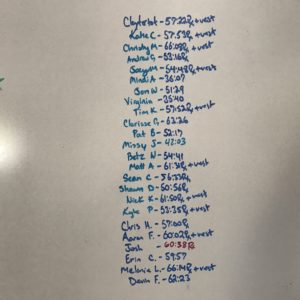 Clayton - 57:22Rx+vest
Katie C - 57:53Rx+vest
Christy M - 66:08Rx+vest
Andrew G - 53:16Rx
Joey M - 54:48Rx+vest
Mindi A - 36:07
Jon W - 51:29
Virginia - 35:40
Tim K - 57:52Rx+vest
Clarissa G - 62:26
Pat B - 52:17
Missy S - 42:03
Betz N - 54:41
Matt A - 61:31Rx+vest
Sean C - 56:33Rx
Shawn D - 50:56Rx
Nick K - 61:50Rx+vest
Kyle P - 53:35Rx+vest
Chris H. - 57:00Rx
Aaron F. - 60:02Rx+vest
Josh - 60:38Rx
Erin C. - 59:57
Melanie L. - 66:14Rx+vest
Devin F. - 62:23